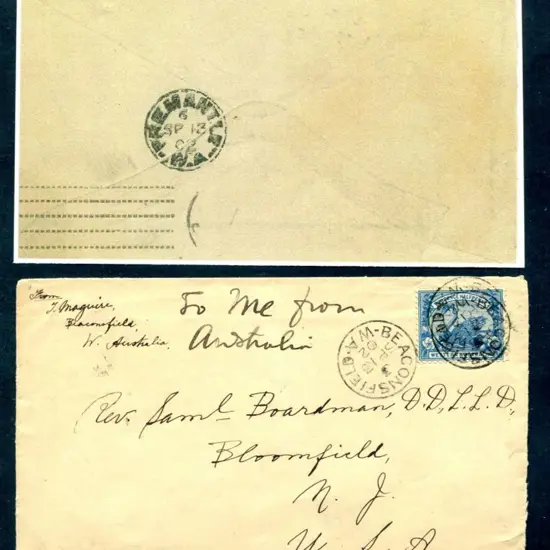 FREMANTLE
6
SP 13
02
W.A
From
T. Maguire,
Beaconsfield,
W. Australia
To Me from
Australia
BEACONSFIELD·W.A
Rev. Saml. Boardman, D.D., L.L.D.,
Bloomfield,
N. J.
U. S. A.